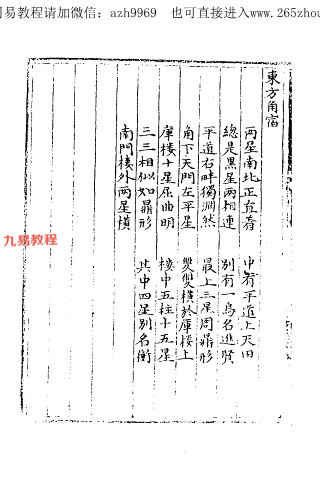 习易教程请加微信：azh9969 也可直接进入www.265zhou
東方角宿
兩星南北正直看 中有平道上天田
總是黑星兩相連 別有一烏名進賢
平道右畔獨淵然 最上三星周鼎形
角下天門左平星 雙雙橫於庫樓上
庫樓十星屈曲明 樓中五柱十五星
三三相似如鼎形 其中四星別名衡
南門樓外兩星橫
九易教程